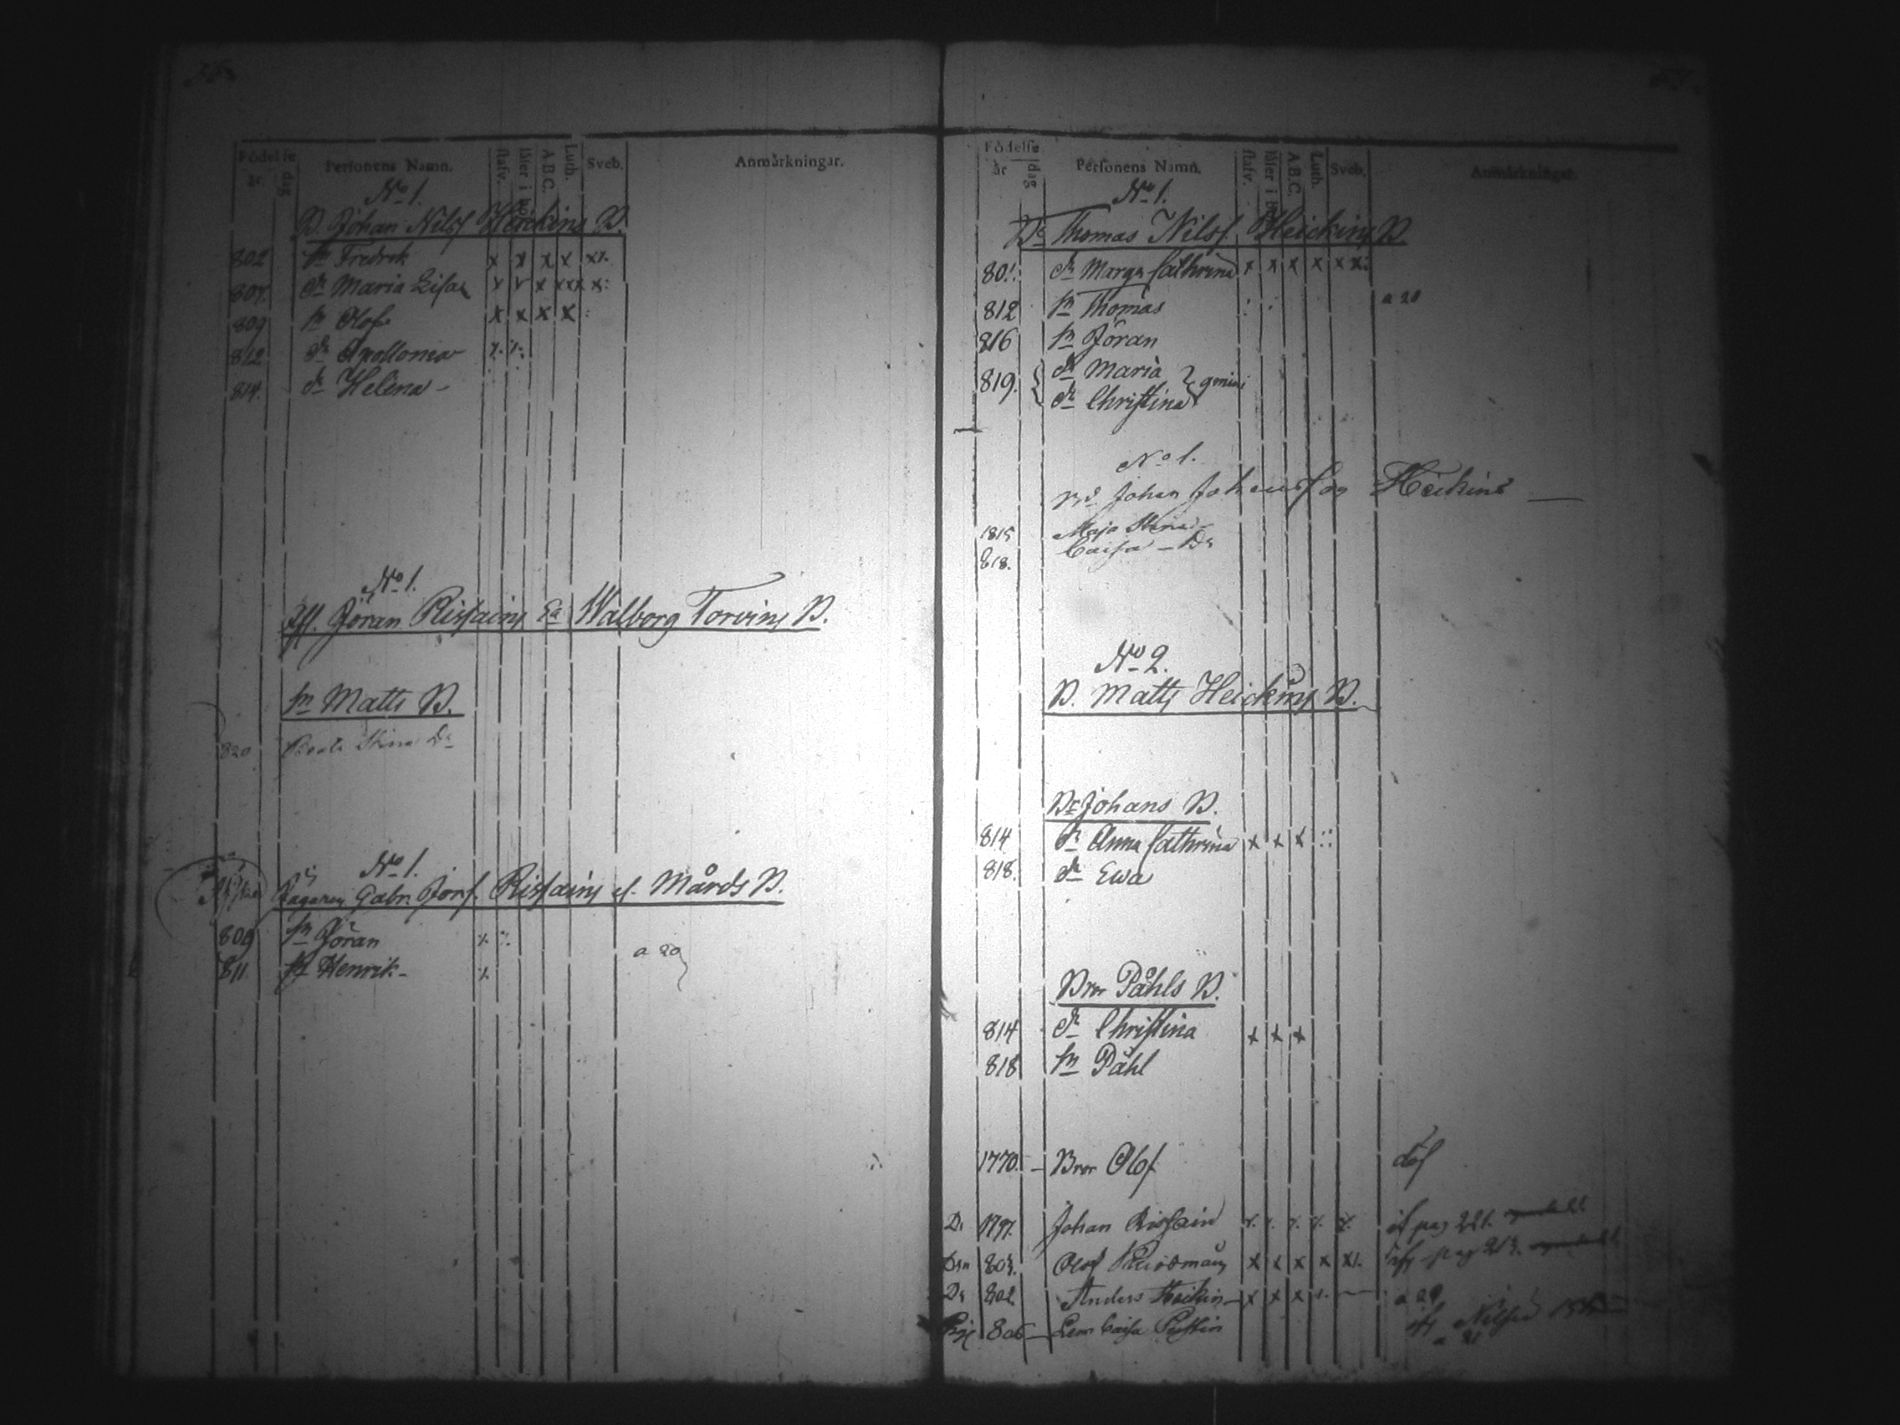 Födelse
år
dag
Personens Namn.
stafv.
läser i bok
A.B.C.
Luth.
Sveb.
Anmärkningar.
No 1.
B. Johan Nilsf Heickins B.
802 sn Fredrik x x x x x/.
807. dr Maria Lisa x x x xxx x:
809 sn Olof x x x x :
812 dr Apollonia
814. dr Helena -
No 1.
Iff. Jöran Rissains Ea Walborg Torvins B.
sn Matts B.
820 Beata Stina Dr
No 1.
Gabr. Jörs. Rissains el. Mårds B.
809 sn Jöran
a 20
811 sn Henrik -
Födelse
år
dag
Personens Namn.
stafv.
läser i
A.B.C.
Luth.
Sveb.
Anmärkningar.
No 1.
Thomas Nilsf. Heickins B
801: dr Marga Cathrina x x x x x x:
812 sn Thomas : : a 20
816 sn Jöran
819. { dr Maria } gmini
dr Christina
No 1.
Johan Johansson Heikins
1815 Maja Stina
818. Caisa - Dr
No 2.
B. Matts Heickins B.
Br Johans B.
814 dr Anna Cathrina x x x ::
818. dr Ewa
Bror Påhls B.
814 dr Christina x x x
818 sn Påhl
1770. - Bror Olof döf
Dr 1797. Johan Rissain pag 221.
803. Olof x x x x x/. pag 213.
Dr 802 Anders Heikin x x x a 20
806 - Lena Caisa